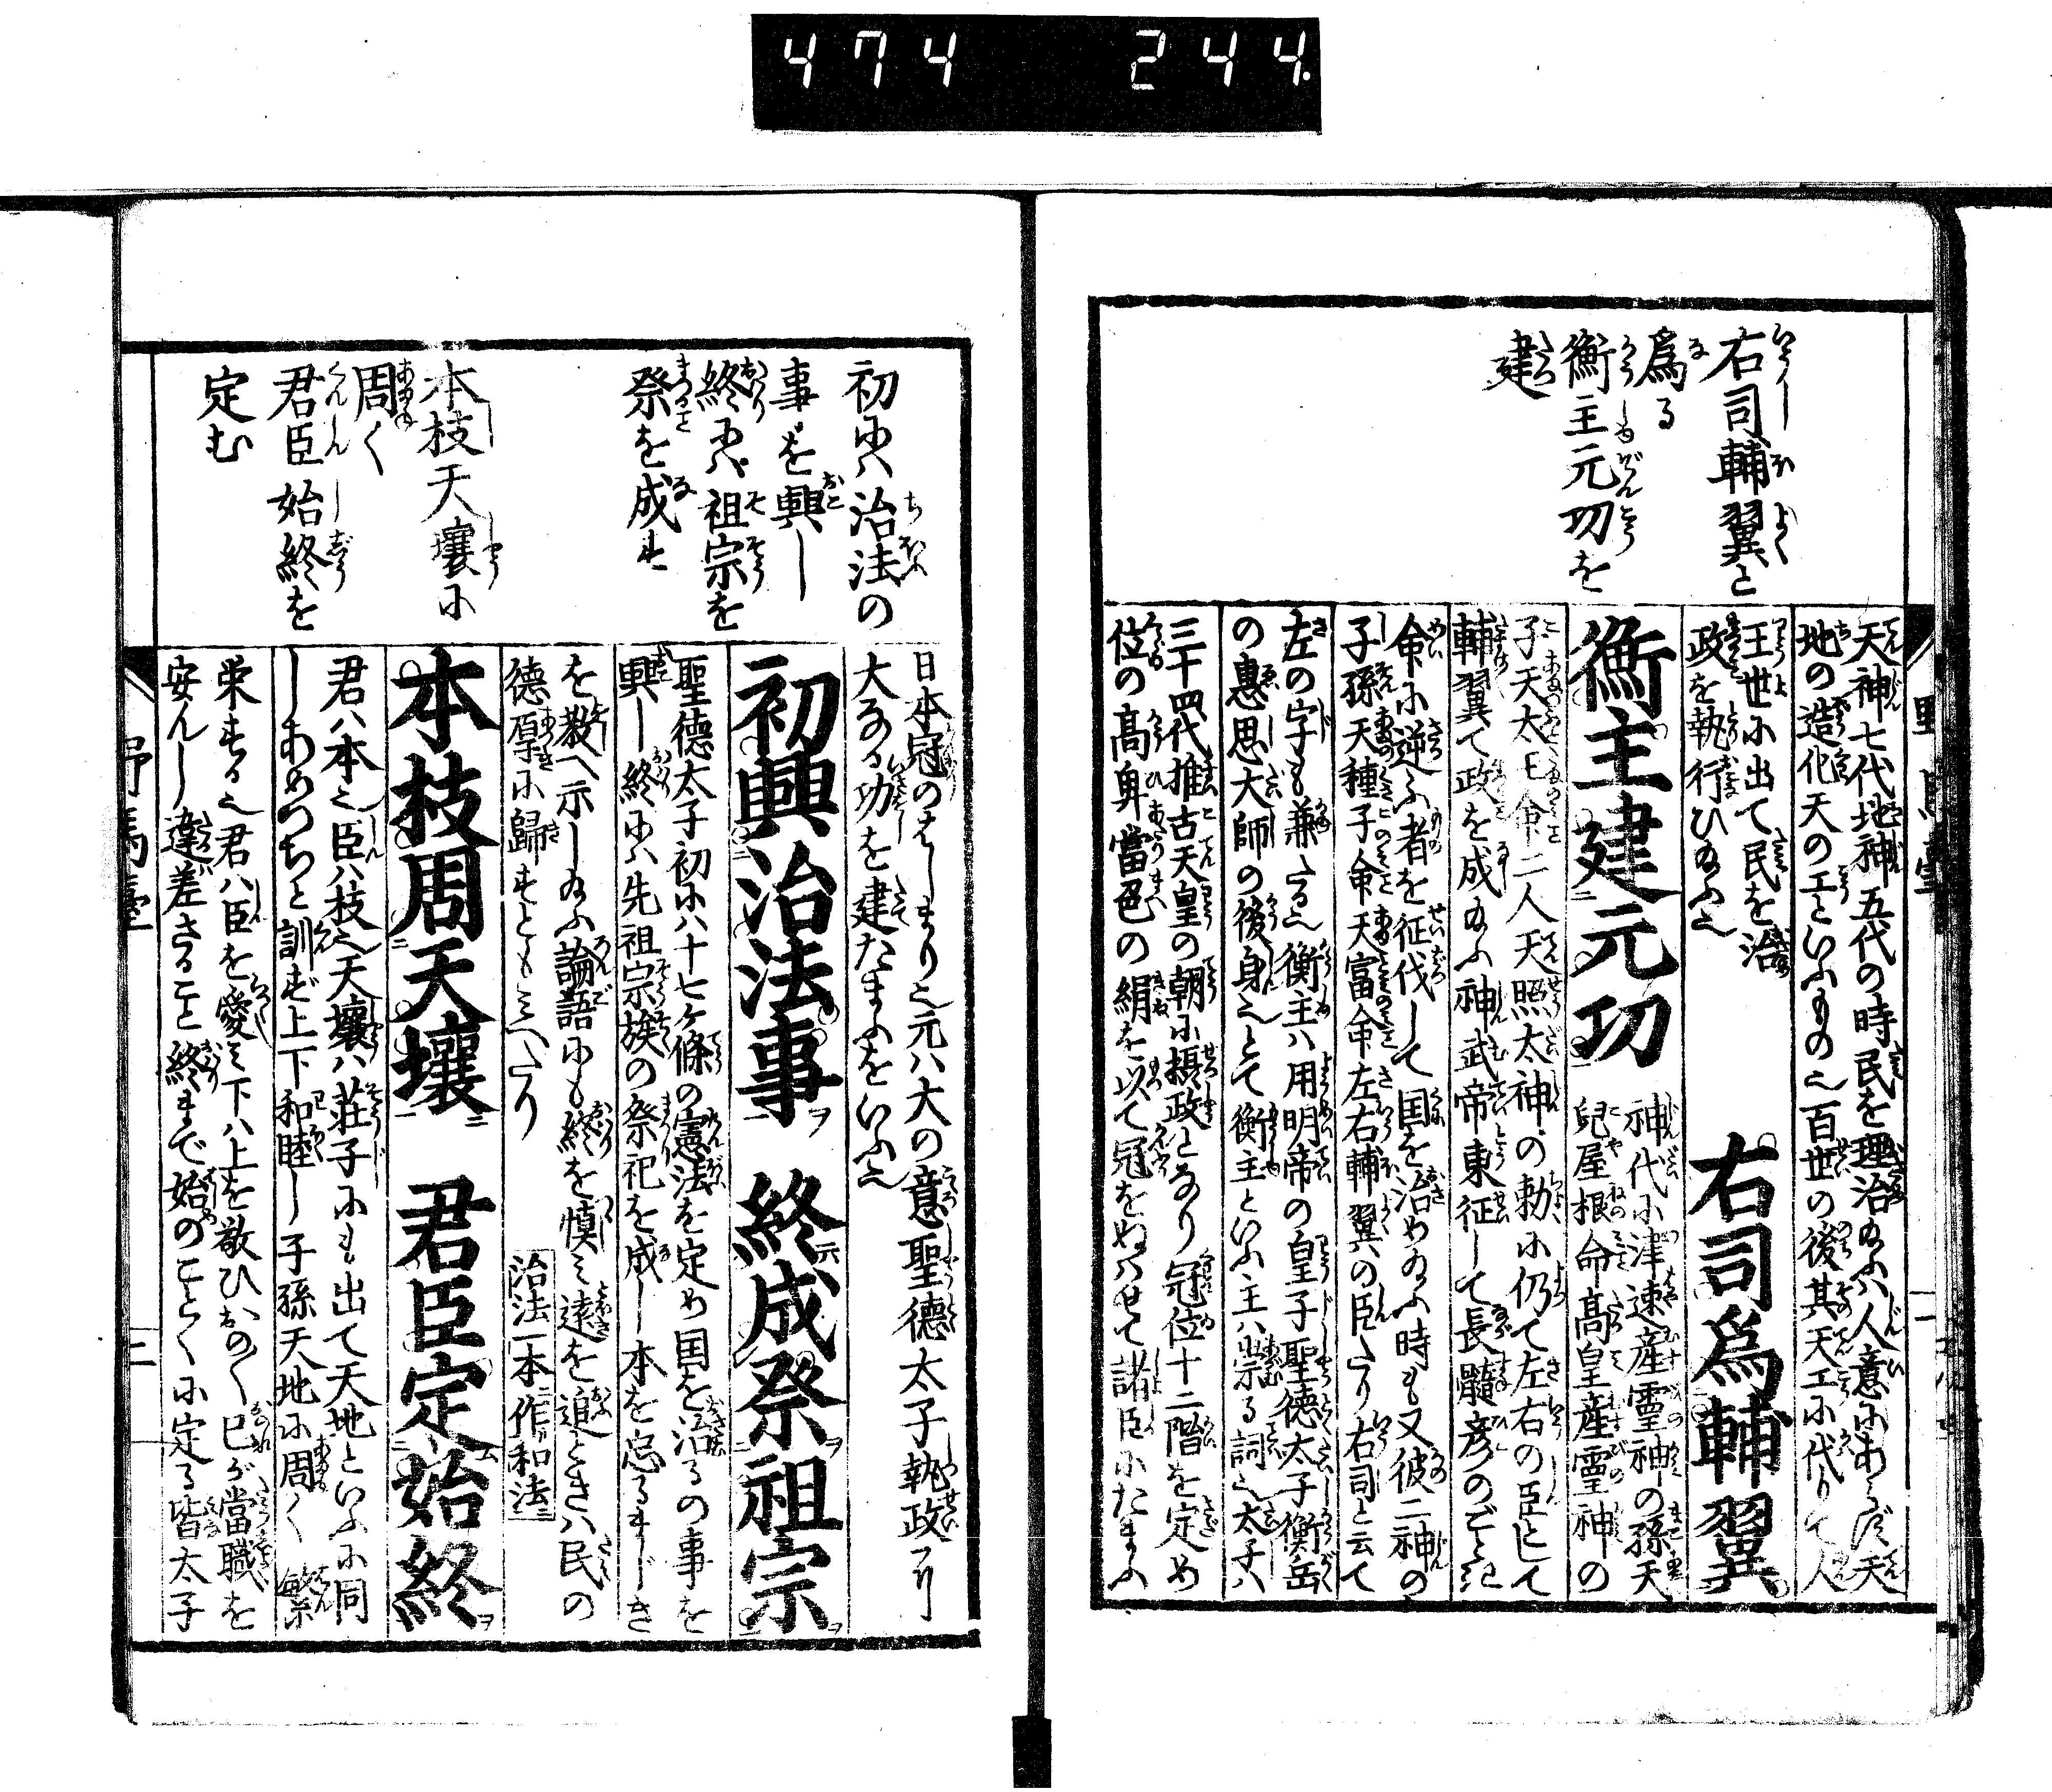 474 244
右司輔翼と
為る
衡主元功を
建
天神七代地神五代の時民を理治給ふハ人意にあらず天
地の造化天の工といふもの也百世の後其天工に代りて人
王世に出て民を治
政を執行ひ給ふ也
右司為輔翼
衡主建元功
神代に津速産霊神の孫天
児屋根命高皇産霊神の
子天太玉命二人天照太神の勅に仍て左右の臣として
輔翼て政を成給ふ神武帝東征して長髄彦のごとき
命に逆ふ者を征伐して国を治め給ふ時も又彼二神の
子孫天種子命天富命左右輔翼の臣たり右司と云て
左の字も兼たる也衡主ハ用明帝の皇子聖徳太子衡岳
の惠思大師の後身也とて衡主といふ主ハ崇る詞也太子ハ
三十四代推古天皇の朝に摂政となり冠位十二階を定め
位の高卑當色の絹を以て冠をぬハせて諸臣にたまふ
初にハ治法の
事を興し
終にハ祖宗を
祭を成す
本枝天壌に
周く
君臣始終を
定む
日本冠のはしまり也元ハ大の意聖徳太子執政ノ
大なる功を建たまふをいふ也
初興治法事 終成祭祖宗
聖徳太子初にハ十七ケ條の憲法を定め国を治るの事を
興し終にハ先祖宗族の祭祀を成し本を忘るまじき
を教へ示し給ふ論語にも終を慎ミ遠を追ときハ民の
徳厚に歸すともミへたり
治法一本作和法
本枝周天壌 君臣定始終
君ハ本也臣ハ枝也天壌ハ荘子にも出て天地といふに同
しあめつちと訓ず上下和睦し子孫天地に周く繁
栄する也君ハ臣を愛ミ下ハ上を敬ひおの〱己が當職を
安んし違差さること終まで始のことくに定る皆太子
野馬臺
三